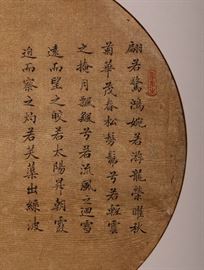 翩若驚鴻婉若游龍榮曜秋
菊華茂春松髣髴兮若輕雲
之掩月飄颻兮若流風之迴雪
遠而望之皎若太陽昇朝霞
迫而察之灼若芙蕖出綠波